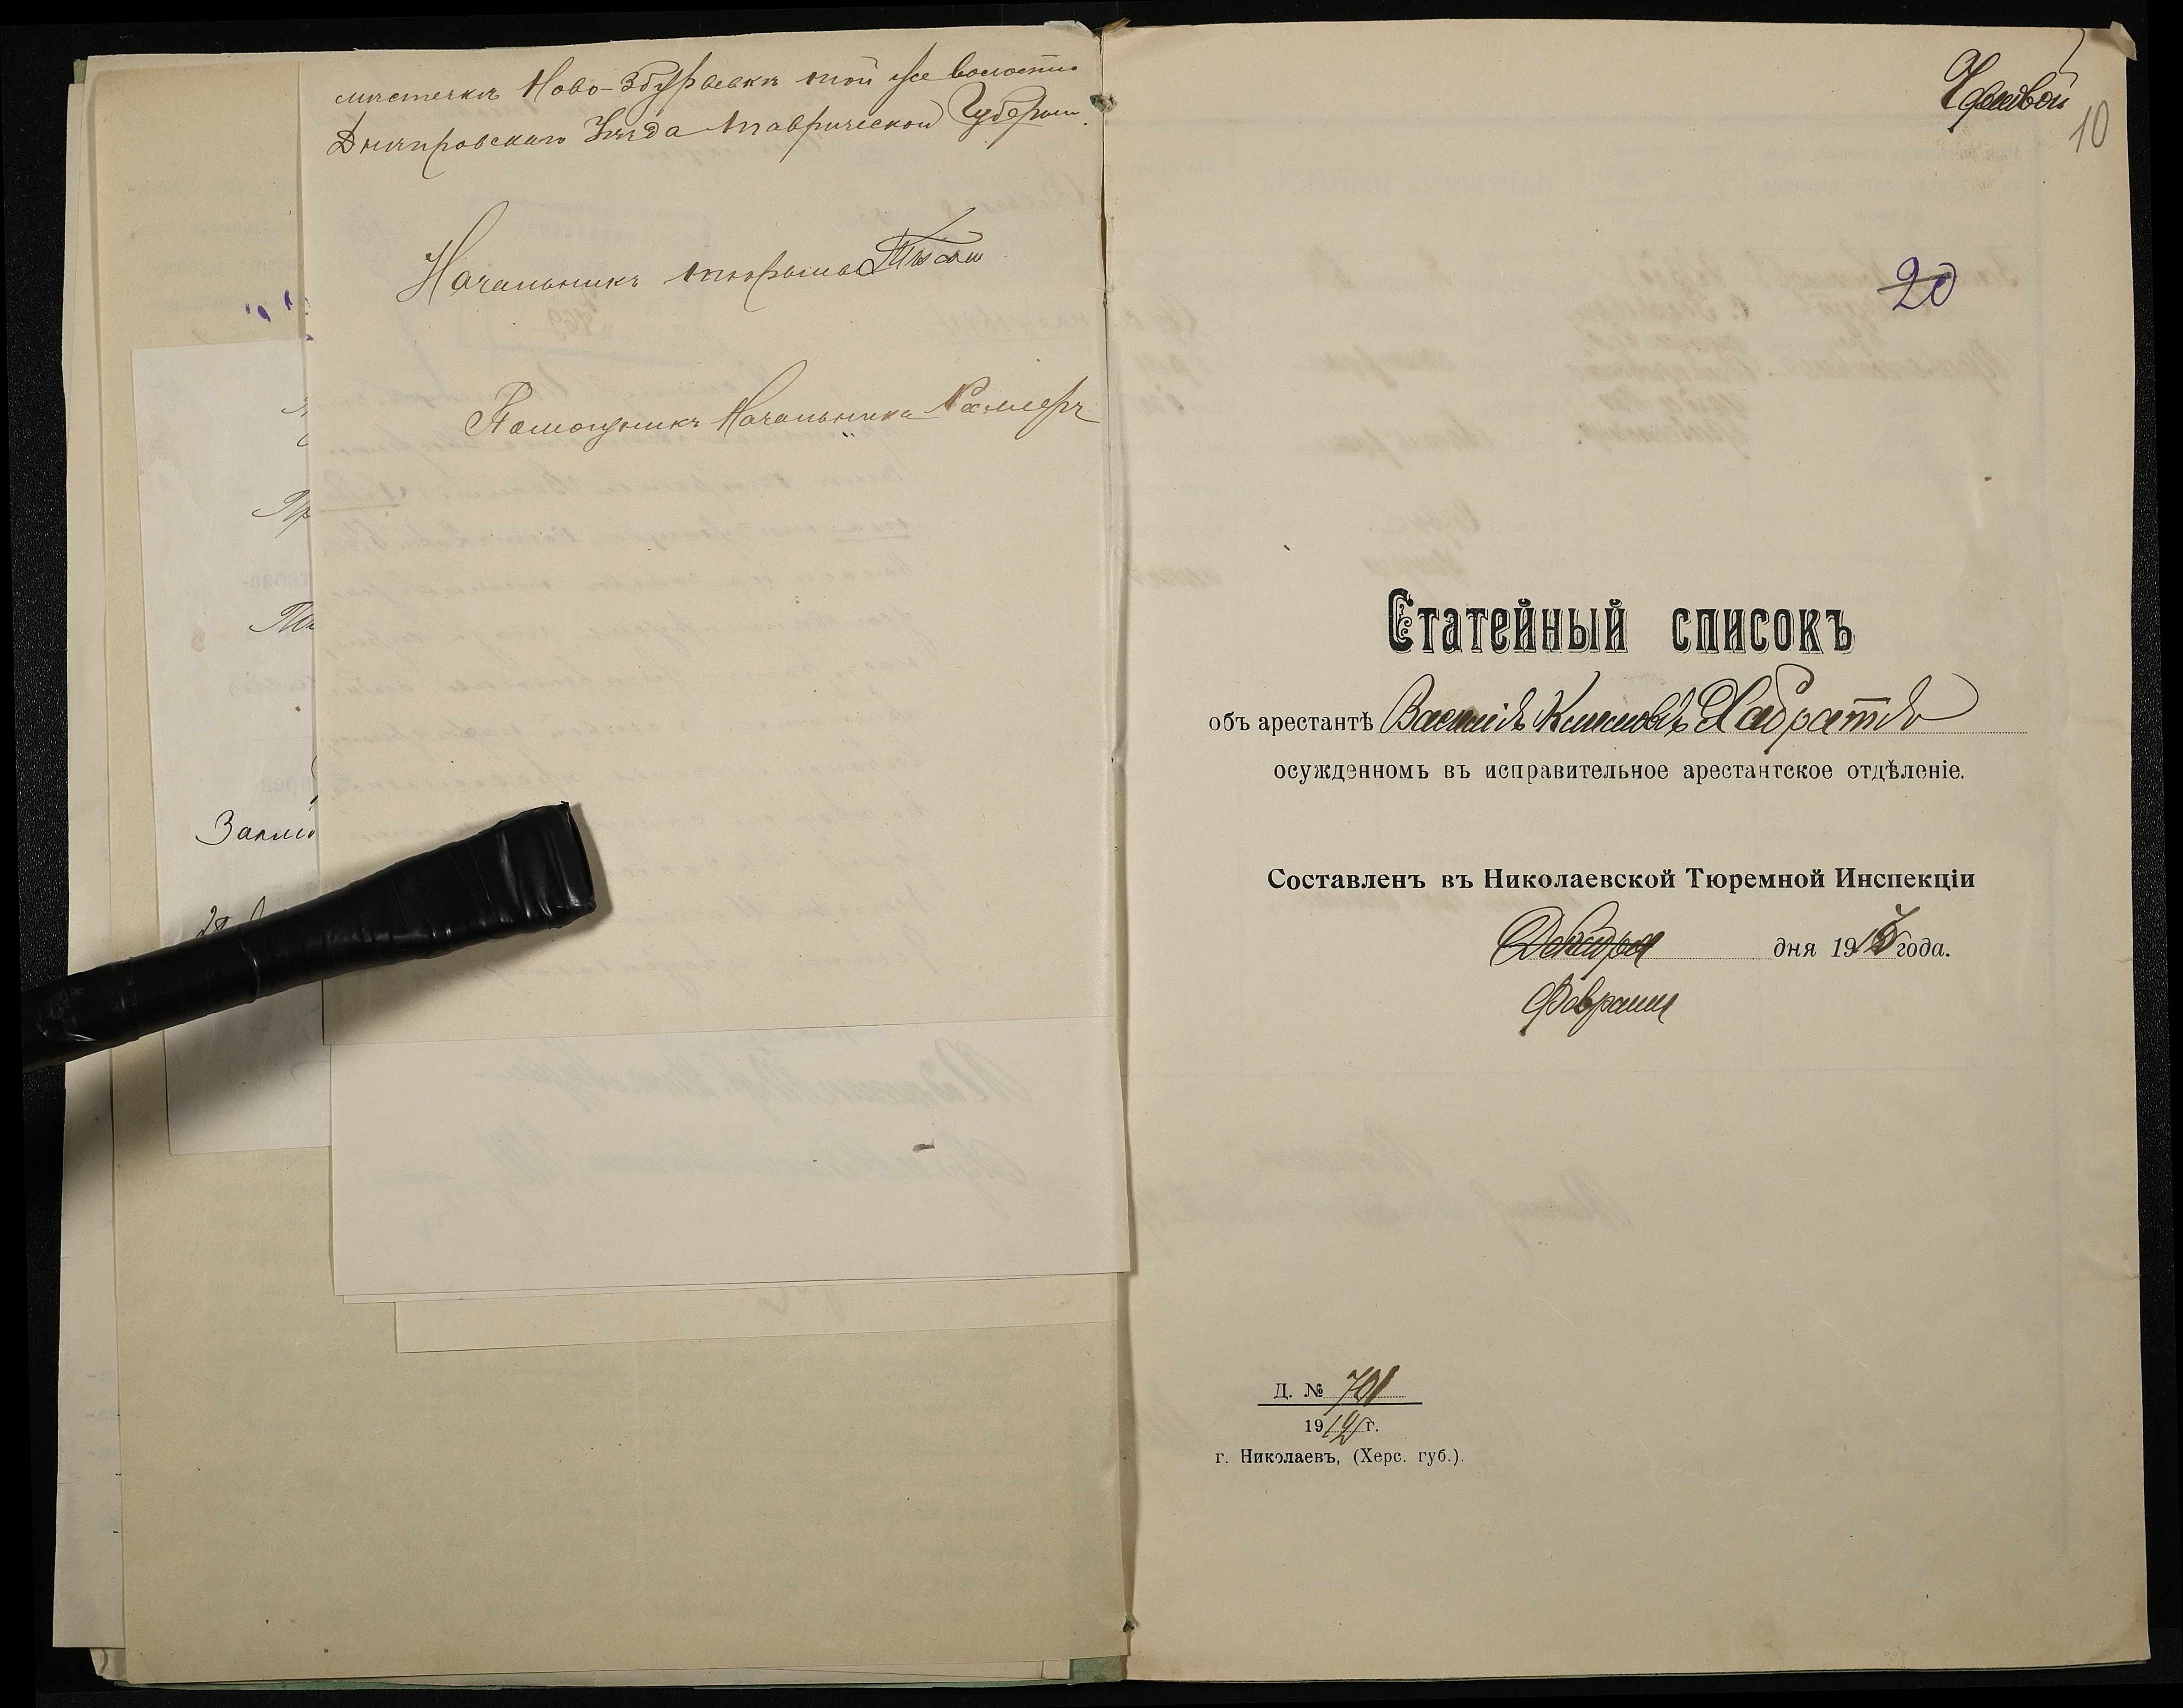 мѣстечка Ново-Збурьевки той же волости
Днѣпровскаго Уѣзда Таврической Губерніи.
Начальникъ тюрьмы
Помощникъ Начальника
Заклю
Черновой
10
20
Статейный списокъ
объ арестантѣ Василіѣ Климовѣ Хабратѣ
осужденномъ въ исправительное арестантское отдѣленіе.
Составленъ въ Николаевской Тюремной Инспекціи
Декабря дня 1915 года.
Февраля
Д. № 701
1914 г.
г. Николаевъ, (Херс. губ.).